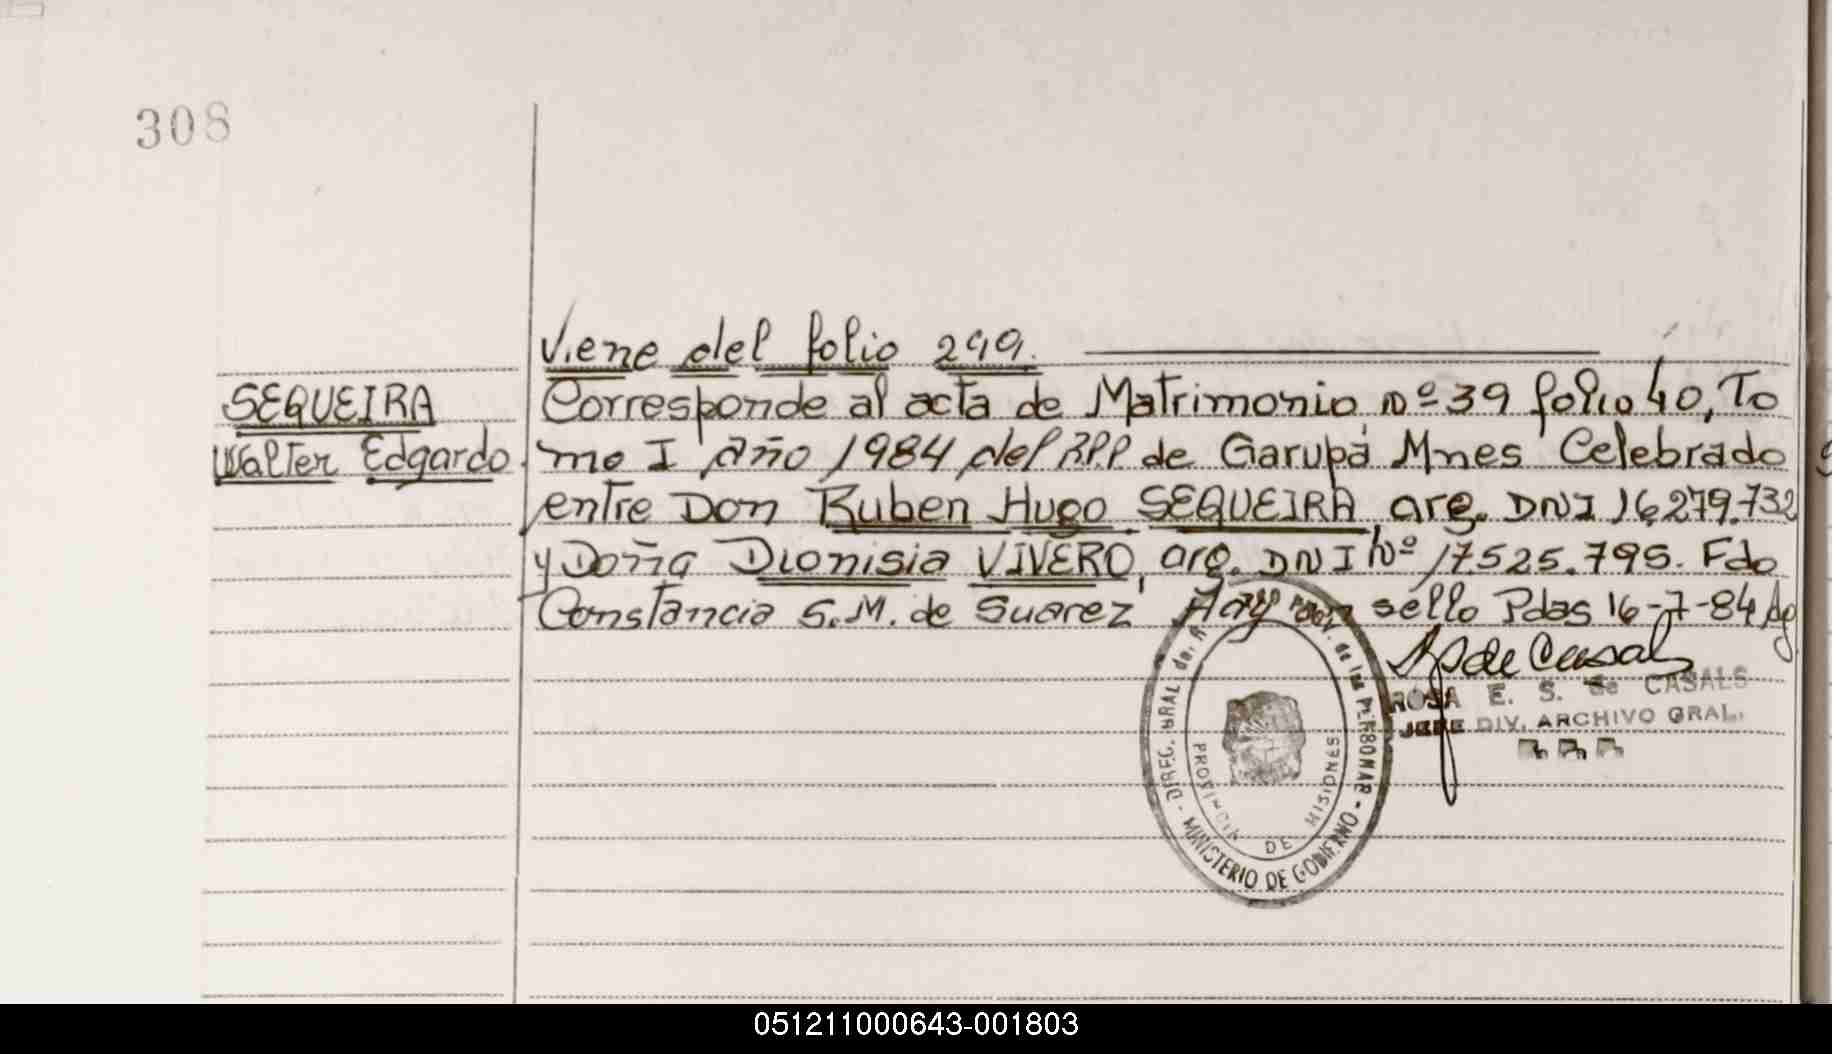 308
Viene del folio 299.
SEQUEIRA
Walter Edgardo
Corresponde al acta de Matrimonio Nº 39 folio 40, To
mo I año 1984 del RPP de Garupá Mnes Celebrado
entre Don Ruben Hugo SEQUEIRA, arg. DNI 16.279.732
y Doña Dionisia VIVERO, arg. DNI Nº 17.525.795. Fdo
Constancia S.M. de Suarez, Hay un sello Pdas 16-7-84
de Casals
ROSA E. S. de CASALS
JEFE DIV. ARCHIVO GRAL.
DIREC. GRAL de las PERSONAS - MINISTERIO DE GOBIERNO -
PROVINCIA DE MISIONES
051211000643-001803